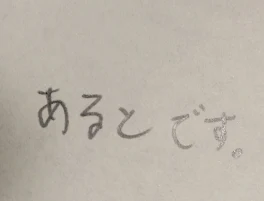 あるとです。